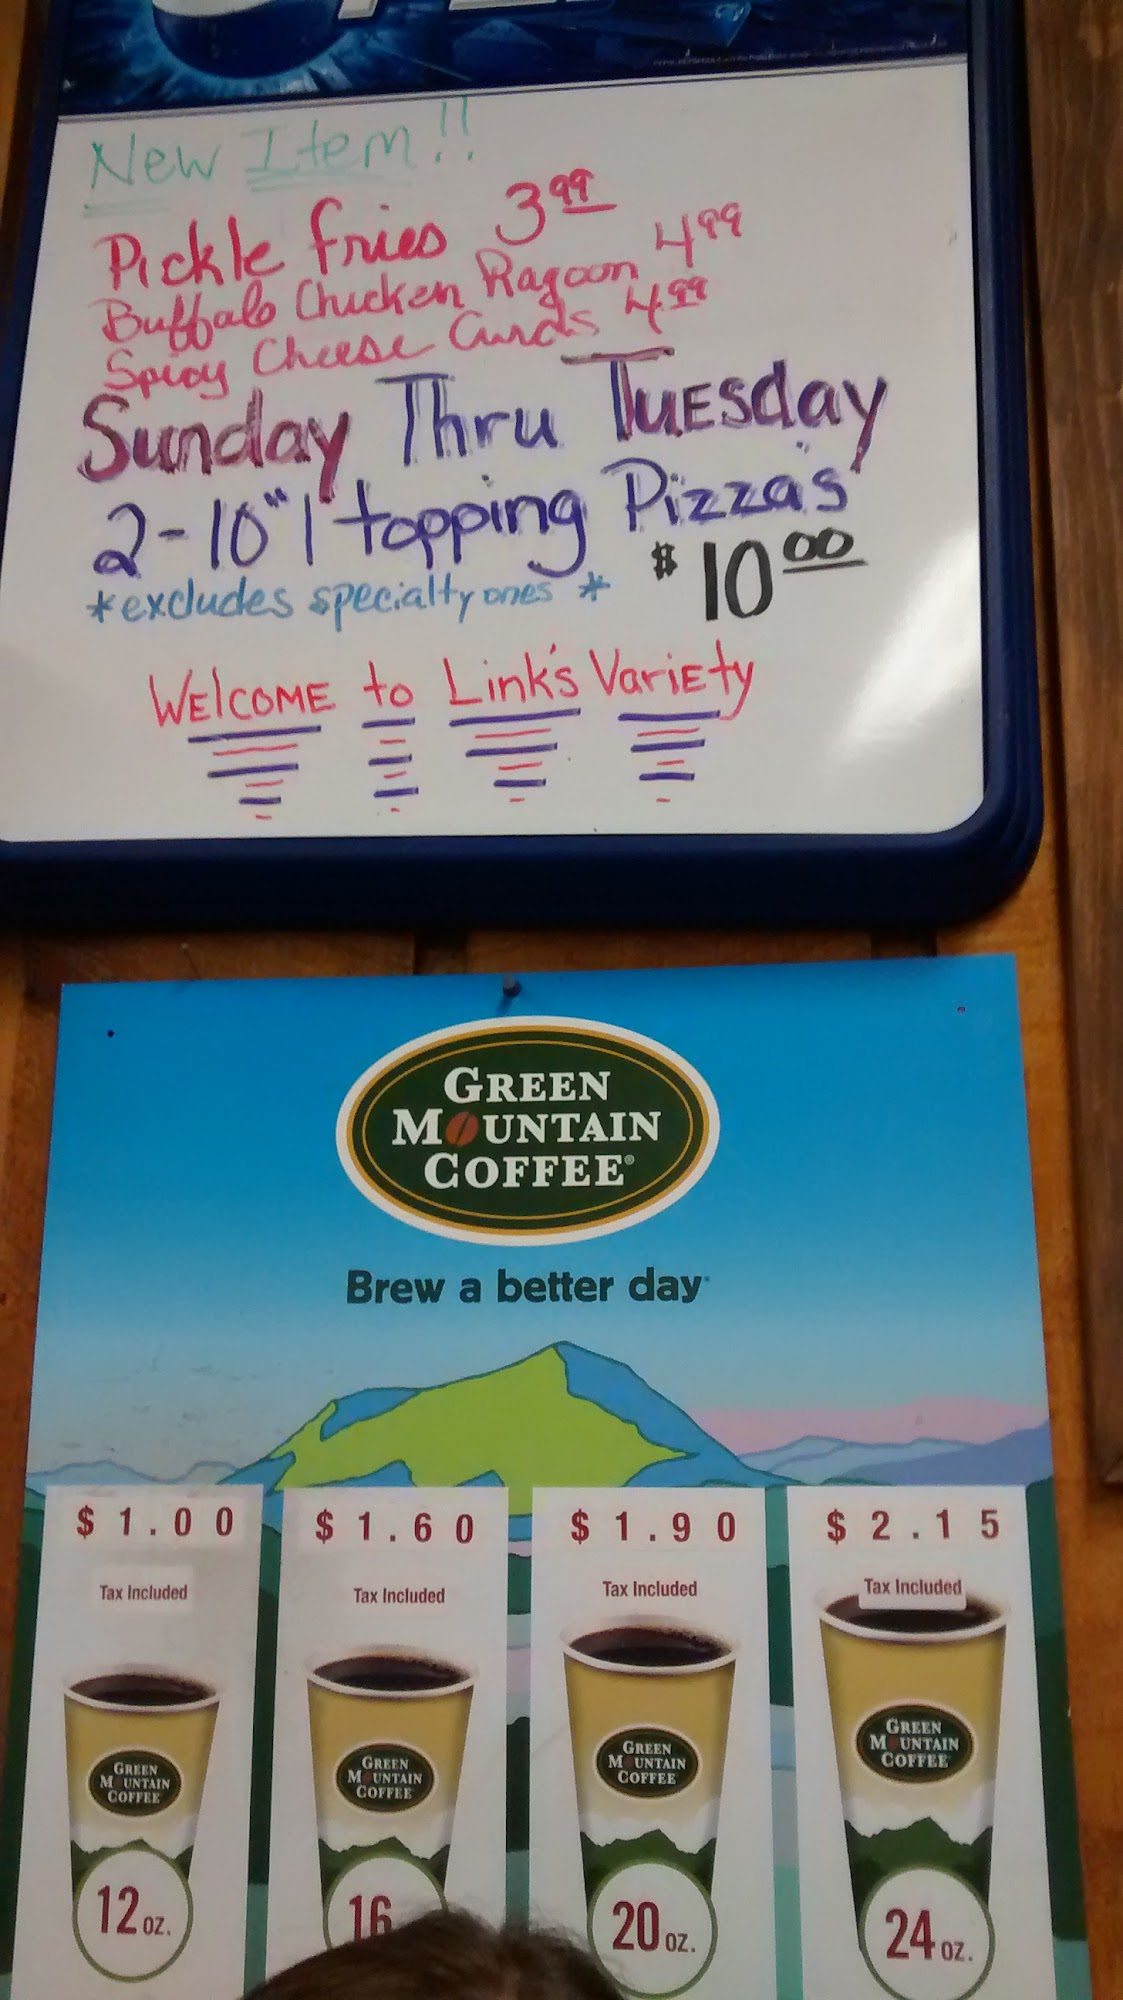 New Item!!
Pickle fries 3.99
Buffalo Chicken Ragoon 4.99
Spicy Cheese Curds 4.99
Sunday Thru Tuesday
2-10" 1 topping Pizza's
*excludes specialty ones * $10.00
Welcome to Link's Variety
GREEN
MOUNTAIN
COFFEE®
Brew a better day
$1.00 $1.60 $1.90 $2.15
Tax Included Tax Included Tax Included Tax Included
GREEN MOUNTAIN COFFEE GREEN MOUNTAIN COFFEE GREEN MOUNTAIN COFFEE GREEN MOUNTAIN COFFEE
12 oz. 16 20 oz. 24 oz.